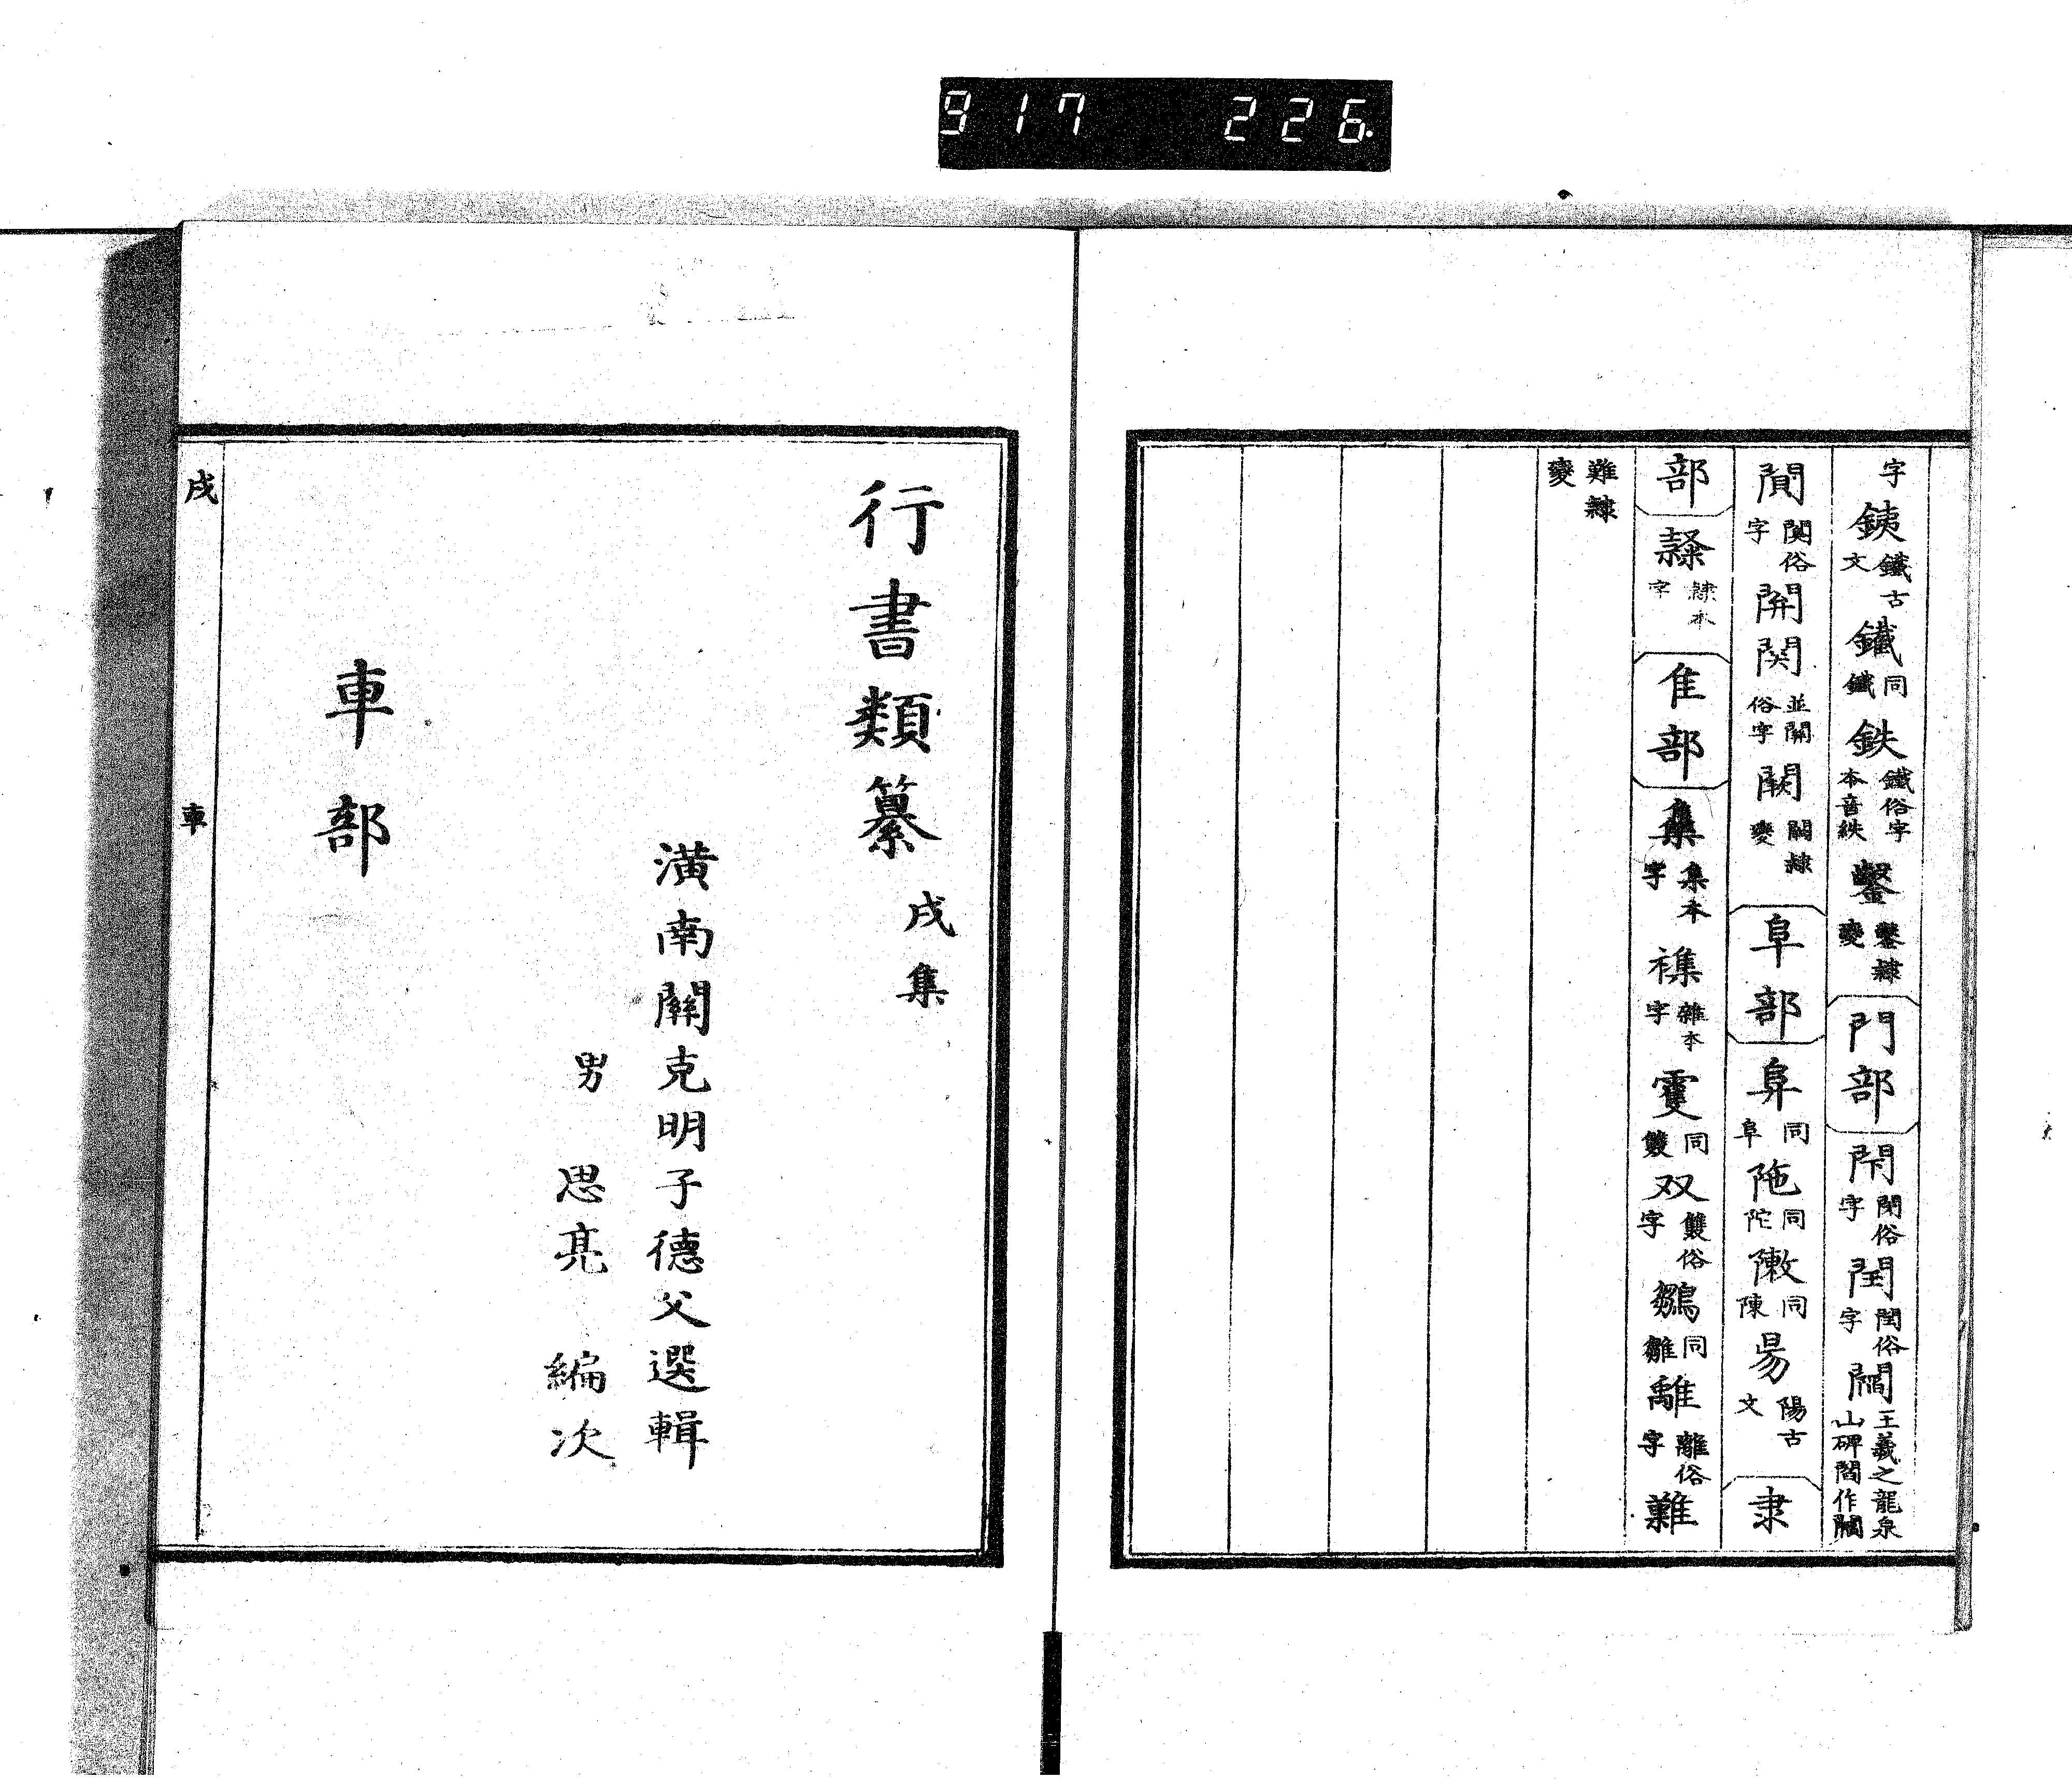 917 226.
字 銕 鐵古文 鐵 同鐵 鉄 鐵俗字本音紩 鑿 鑿隷變 門部 閇 閉俗字 閏 閏俗字 閻 王羲之龍泉山碑閻作
閒 関俗字 開 関 並關俗字 闕 闕隷變 阜部 阜 同阜 陁 同陀 敶 同陳 昜 陽古文 隶
部 隷本字 隹部 雧 集本字 雜本字 同雙 双 雙俗字 鶵 同雛 離俗字 難
難隷變
行書類纂 戌集
潢南關克明子德父選輯
男 思亮 編次
車部
戌 車